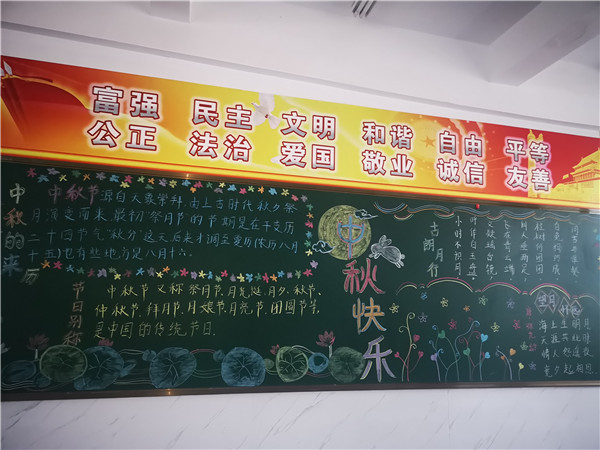 富强 民主 文明 和谐 自由 平等
公正 法治 爱国 敬业 诚信 友善
中秋的来历
中秋节源自天象崇拜,由上古时代秋夕祭
月演变而来。最初"祭月节"的节期是在干支历
二十四节气"秋分"这天,后来才调至夏历(农历)八月
十五,也有些地方是八月十六。
节日别称
中秋节又称祭月节、月光诞、月夕、秋节、
仲秋节、拜月节、月娘节、月亮节、团圆节等,
是中国的传统节日。
中秋快乐
古朗月行
小时不识月
呼作白玉盘
又疑瑶台镜
飞在青云端
望月怀远
海上生明月
天涯共此时
情人怨遥夜
竟夕起相思